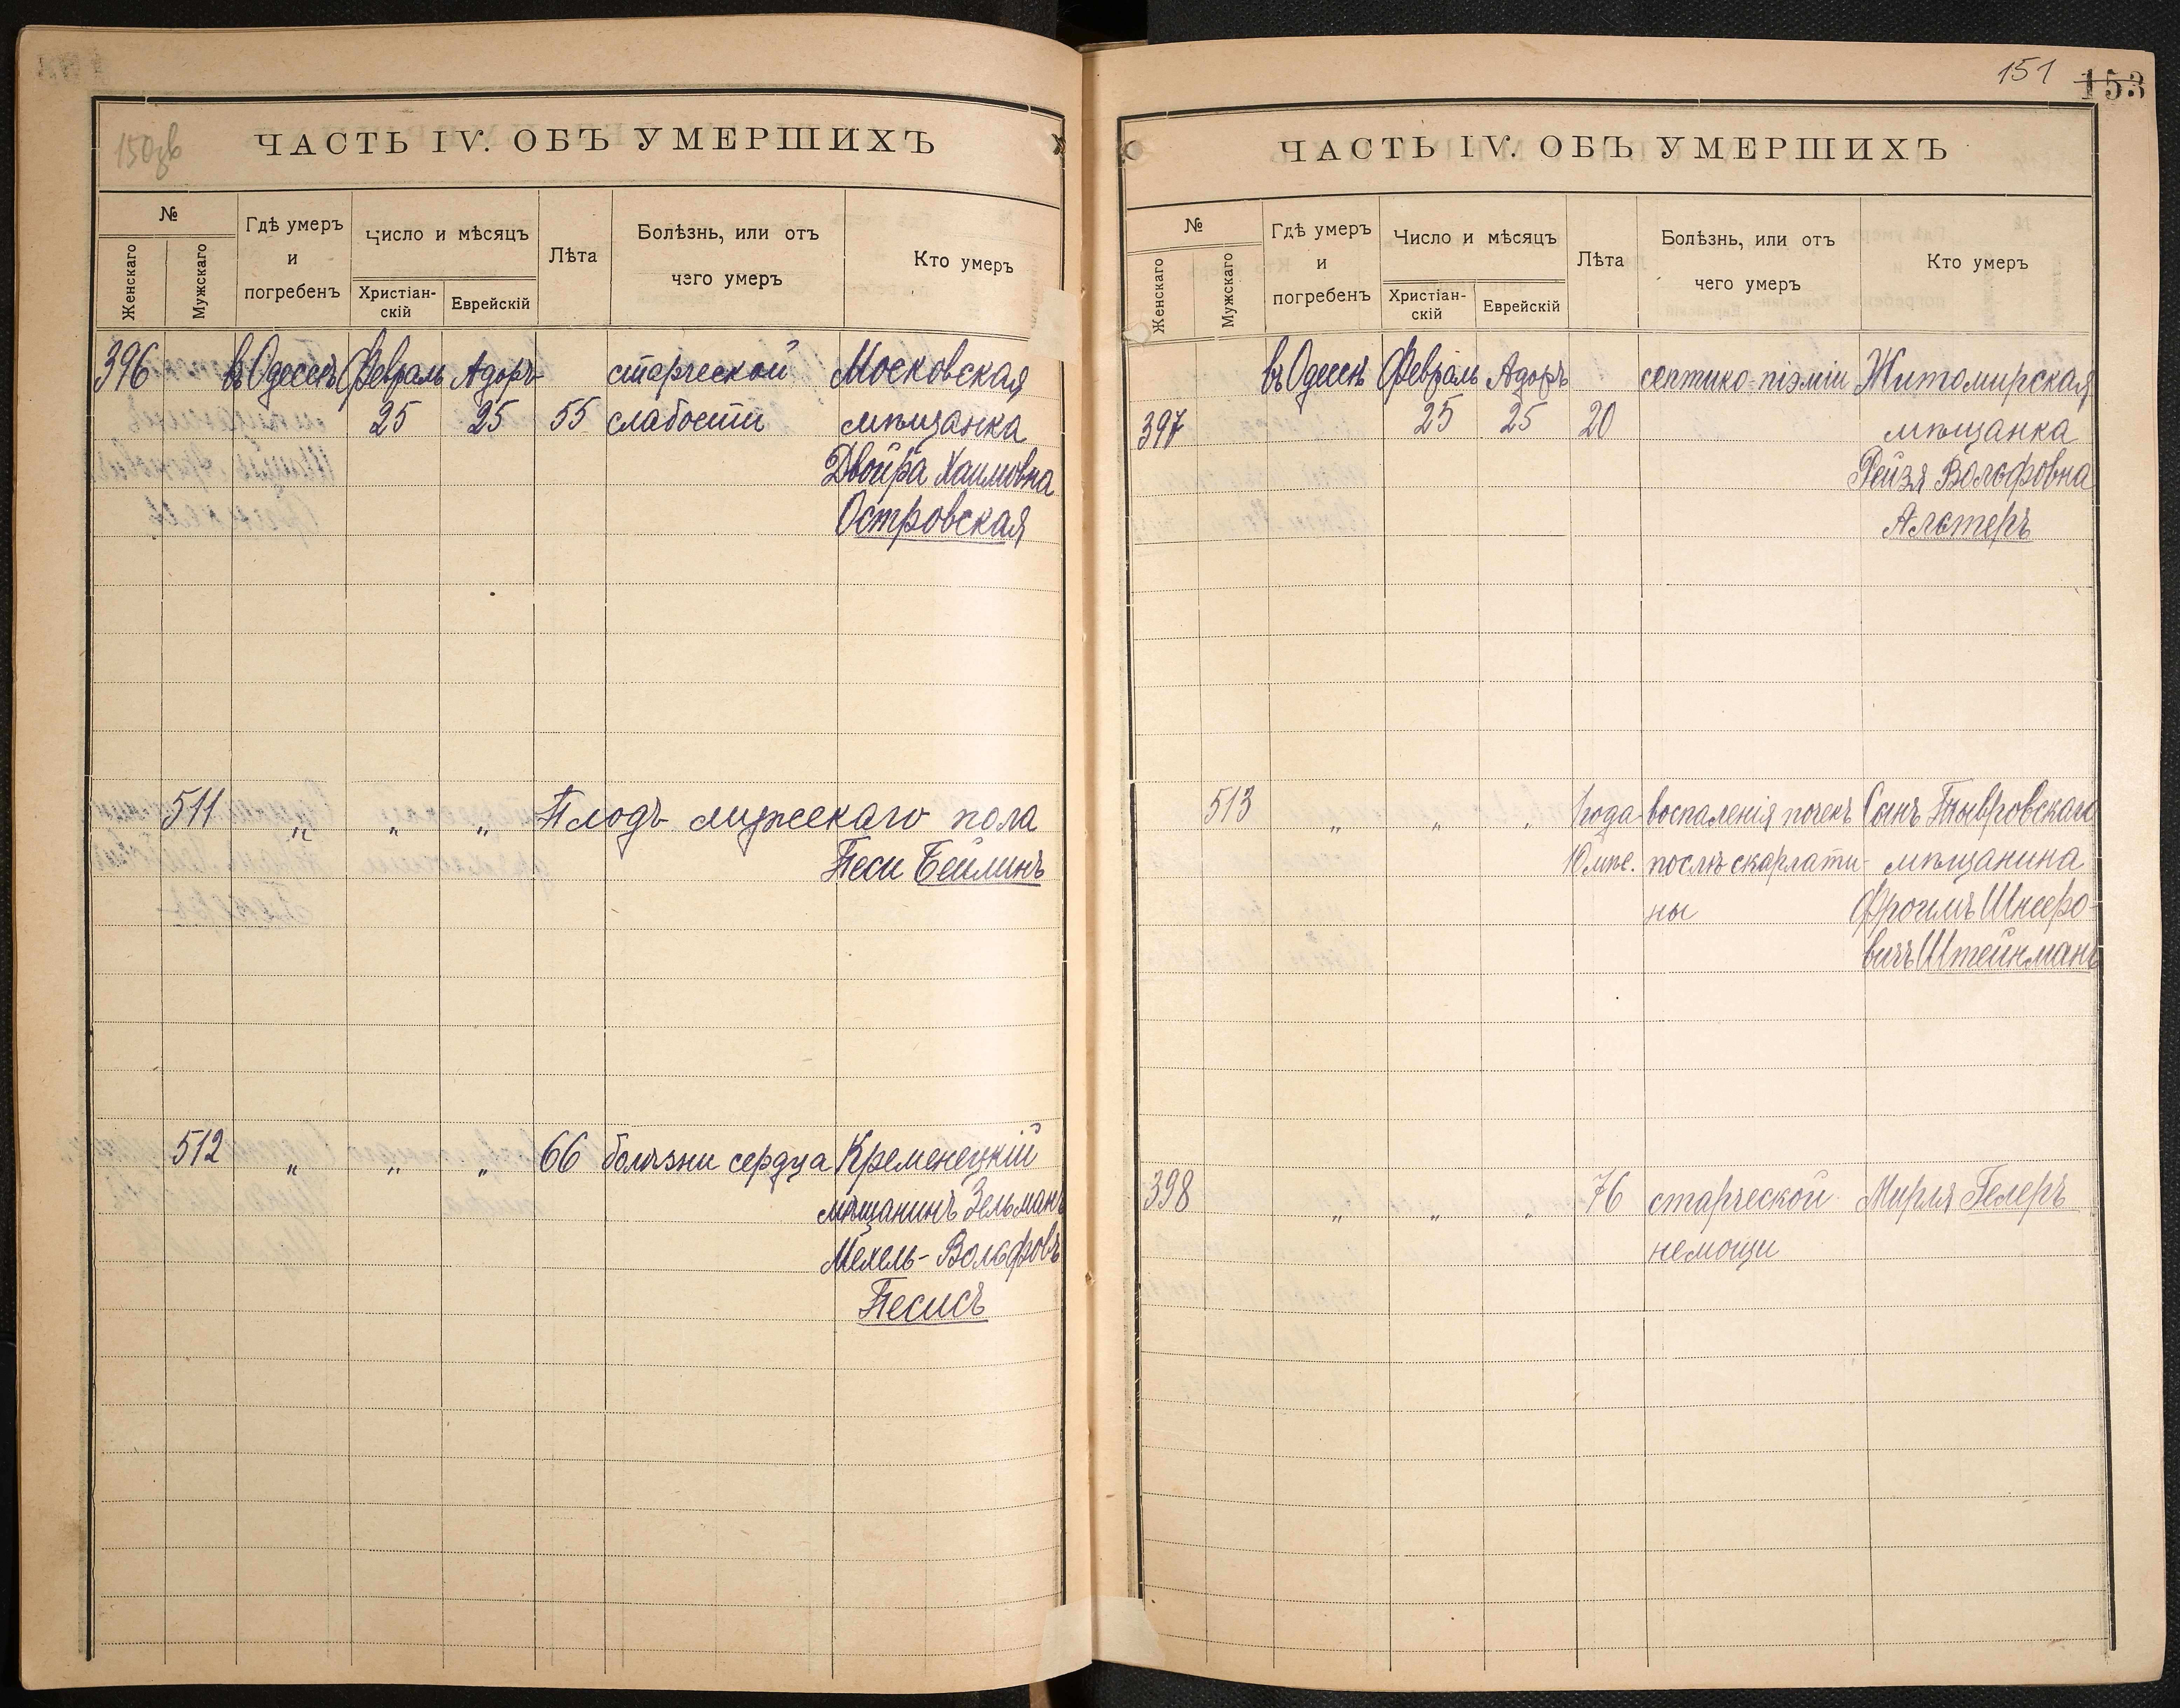 150зв
ЧАСТЬ IV. ОБЪ УМЕРШИХЪ
№
Женскаго
Мужскаго
Гдѣ умеръ
и
погребенъ
Число и мѣсяцъ
Христіан-
скій
Еврейскій
Лѣта
Болѣзнь, или отъ
чего умеръ
Кто умеръ
396 въ Одессѣ Февраль Адоръ старческой Московская
25 25 55 слабости мѣщанка
Двойра Хаимовна
Островская
511 " " " Плодъ мужескаго пола
Песи Бейлинъ
512 " " " 66 болѣзни сердца Кременецкій
мѣщанинъ Зельманъ
Мехель-Вольфовъ
Песисъ
151 153
ЧАСТЬ IV. ОБЪ УМЕРШИХЪ
№
Женскаго
Мужскаго
Гдѣ умеръ
и
погребенъ
Число и мѣсяцъ
Христіан-
скій
Еврейскій
Лѣта
Болѣзнь, или отъ
чего умеръ
Кто умеръ
въ Одессѣ Февраль Адоръ септико-піэміи Житомирская
397 25 25 20 мѣщанка
Рейзя Вольфовна
Альтеръ
513 " " " 1 года воспаленія почекъ Сынъ Тывровскаго
10 мѣс. послѣ скарлати- мѣщанина
ны Фроимъ Шнееро-
вичъ Штейнманъ
398 " " " 76 старческой Мирля Гелеръ
немощи